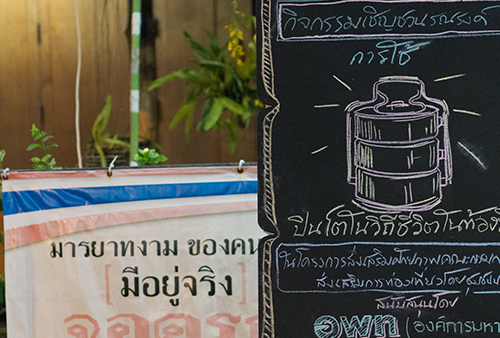 กิจกรรมเชิญชวนรณรงค์
การใช้
ปิ่นโตในวิถีชีวิตในท้องถิ่น
ในโครงการส่งเสริมศักยภาพคณะกรรมการ
ส่งเสริมการท่องเที่ยวโดยชุมชน
สนับสนุนโดย
อพท (องค์การมหา
มารยาทงาม ของคน
มีอยู่จริง
จอดรถ